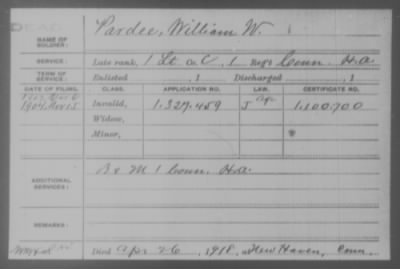 DEAD
NAME OF SOLDIER: Pardee, William W.
SERVICE: Late rank, 1 Lt Co. C, 1 Reg't Conn. H.A.
TERM OF SERVICE: Enlisted , 1 Discharged , 1
DATE OF FILING. CLASS. APPLICATION NO. LAW. CERTIFICATE NO.
1904 Nov 15 Invalid, 1.327.459 1.100.700
Widow,
Minor,
ADDITIONAL SERVICES: B & M 1 Conn. H.A.
REMARKS:
Died Apr 26, 1918, at New Haven, Conn.